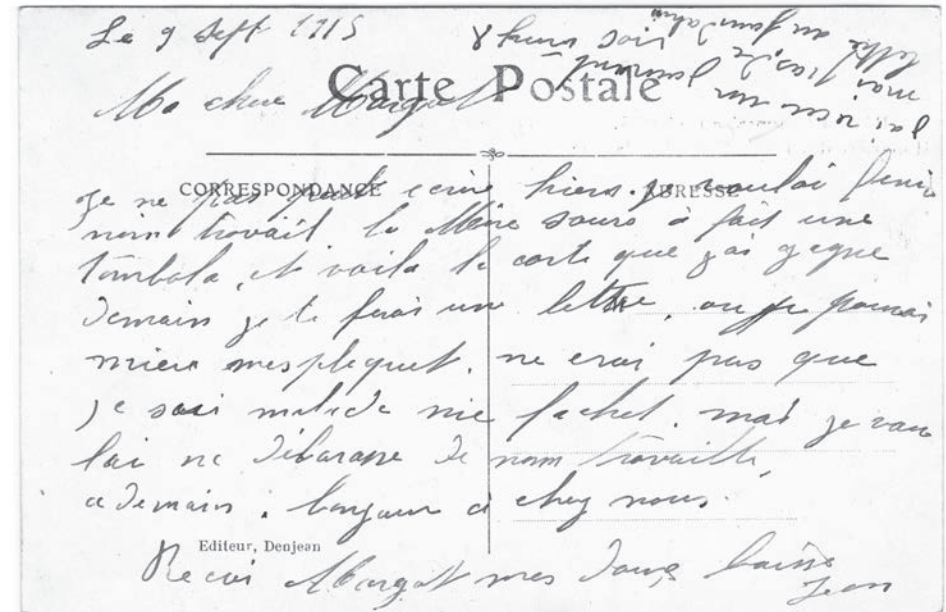 Le 9 Sept 1915 8 heurs soir
Carte Postale
Ma cher Margot
j'ai
mai
lettre
CORRESPONDANCE ADRESSE
Je ne pas ecrire hiers. je voulai finir
mon travail la Mère soure à fait une
tombola, et voila la carte que j'ai gagne
Demain je te ferai une lettre, ou je pourrai
mieu mesplequet. ne crai pas que
je sui malade nie fachet. mai je vou
lai ne débarape de nom travaille,
a demain. bonjour à chez nous.
Editeur, Denjean
Recoi Margot mes doux baisé
Jean